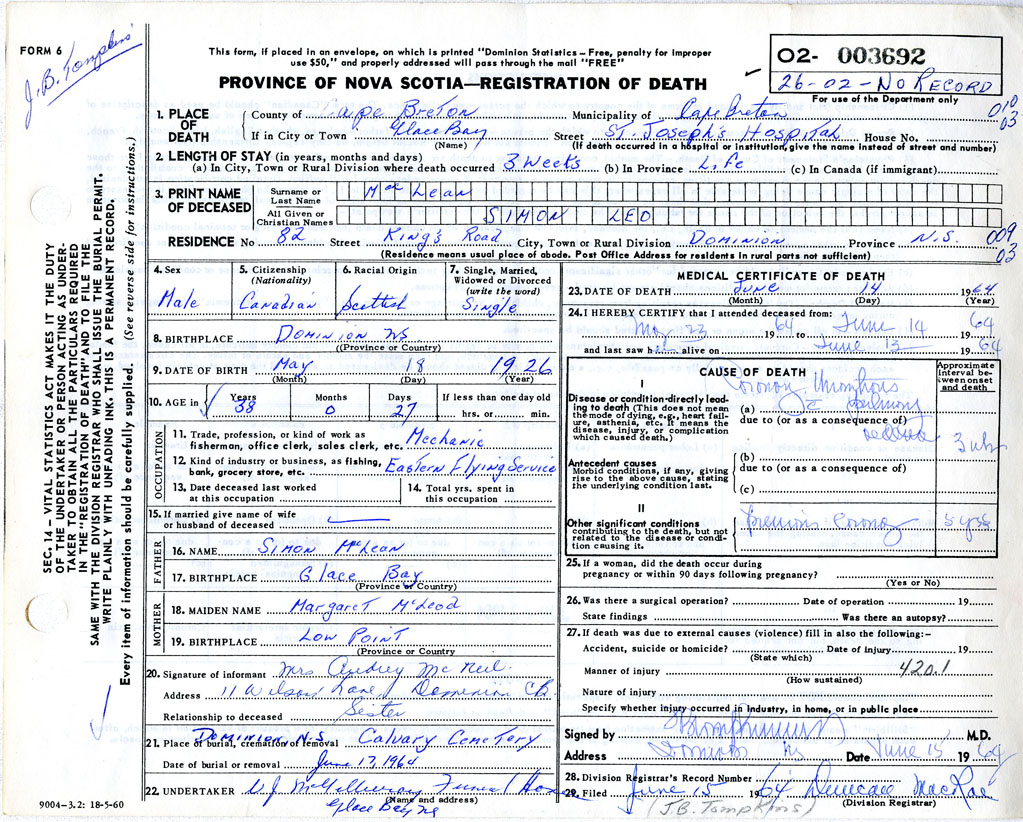 FORM 6
J. B. Tompkins
This form, if placed in an envelope, on which is printed "Dominion Statistics – Free, penalty for improper
use $50," and properly addressed will pass through the mail "FREE"
PROVINCE OF NOVA SCOTIA—REGISTRATION OF DEATH
02- 003692
26-02-No Record
For use of the Department only
SEC. 14 – VITAL STATISTICS ACT MAKES IT THE DUTY
OF THE UNDERTAKER OR PERSON ACTING AS UNDER-
TAKER TO OBTAIN ALL THE PARTICULARS REQUIRED
IN THE "REGISTRATION OF DEATH" AND TO FILE THE
SAME WITH THE DIVISION REGISTRAR WHO SHALL ISSUE THE BURIAL PERMIT.
WRITE PLAINLY WITH UNFADING INK. THIS IS A PERMANENT RECORD.
Every item of information should be carefully supplied. (See reverse side for instructions.)
1. PLACE OF DEATH
County of Cape Breton Municipality of Cape Breton 010
03
If in City or Town Glace Bay Street St. Joseph's Hospital House No.
(Name) (If death occurred in a hospital or institution, give the name instead of street and number)
2. LENGTH OF STAY (in years, months and days)
(a) In City, Town or Rural Division where death occurred 3 Weeks (b) In Province Life (c) In Canada (if immigrant)
3. PRINT NAME OF DECEASED
Surname or Last Name MacLean
All Given or Christian Names SIMON LEO
RESIDENCE No 82 Street King's Road City, Town or Rural Division Dominion Province N.S. 009
03
(Residence means usual place of abode. Post Office Address for residents in rural parts not sufficient)
4. Sex
Male
5. Citizenship (Nationality)
Canadian
6. Racial Origin
Scottish
7. Single, Married, Widowed or Divorced (write the word)
Single
8. BIRTHPLACE Dominion NS
(Province or Country)
9. DATE OF BIRTH May 18 1926
(Month) (Day) (Year)
10. AGE in Years Months Days If less than one day old
38 0 27 hrs. or min.
OCCUPATION
11. Trade, profession, or kind of work as
fisherman, office clerk, sales clerk, etc. Mechanic
12. Kind of industry or business, as fishing,
bank, grocery store, etc. Eastern Flying Service
13. Date deceased last worked
at this occupation
14. Total yrs. spent in
this occupation
15. If married give name of wife
or husband of deceased
FATHER
16. NAME Simon McLean
17. BIRTHPLACE Glace Bay
(Province or Country)
MOTHER
18. MAIDEN NAME Margaret McLeod
19. BIRTHPLACE Low Point
(Province or Country
20. Signature of informant Mrs Audrey McNeil
Address 11 Wilson Lane Dominion CB
Relationship to deceased Sister
21. Place of burial, cremation or removal Dominion N.S. Calvary Cemetery
Date of burial or removal June 17, 1964
22. UNDERTAKER Funeral Home
(Name and address)
Glace Bay, NS
9004–3.2: 18-5-60
MEDICAL CERTIFICATE OF DEATH
23. DATE OF DEATH June 14 1964
(Month) (Day) (Year)
24. I HEREBY CERTIFY that I attended deceased from:
May 23 1964 to June 14 1964
and last saw h alive on June 13 1964
CAUSE OF DEATH
Approximate interval between onset and death
I
Disease or condition directly lead-
ing to death (This does not mean
the mode of dying, e.g., heart fail-
ure, asthenia, etc. It means the
disease, injury, or complication
which caused death.)
(a) Coronary Thrombosis
due to (or as a consequence of)
Antecedent causes
Morbid conditions, if any, giving
rise to the above cause, stating
the underlying condition last.
(b)
due to (or as a consequence of)
(c)
II
Other significant conditions
contributing to the death, but not
related to the disease or condi-
tion causing it.
previous coronary 5 yrs
25. If a woman, did the death occur during
pregnancy or within 90 days following pregnancy?
(Yes or No)
26. Was there a surgical operation? Date of operation 19
State findings Was there an autopsy?
27. If death was due to external causes (violence) fill in also the following:–
Accident, suicide or homicide? Date of injury 19
(State which)
Manner of injury 420.1
(How sustained)
Nature of injury
Specify whether injury occurred in industry, in home, or in public place
Signed by M.D.
Address Dominion NS Date June 15 1964
28. Division Registrar's Record Number
29. Filed June 15 1964 Duncan MacRae
(J.B. Tompkins) (Division Registrar)